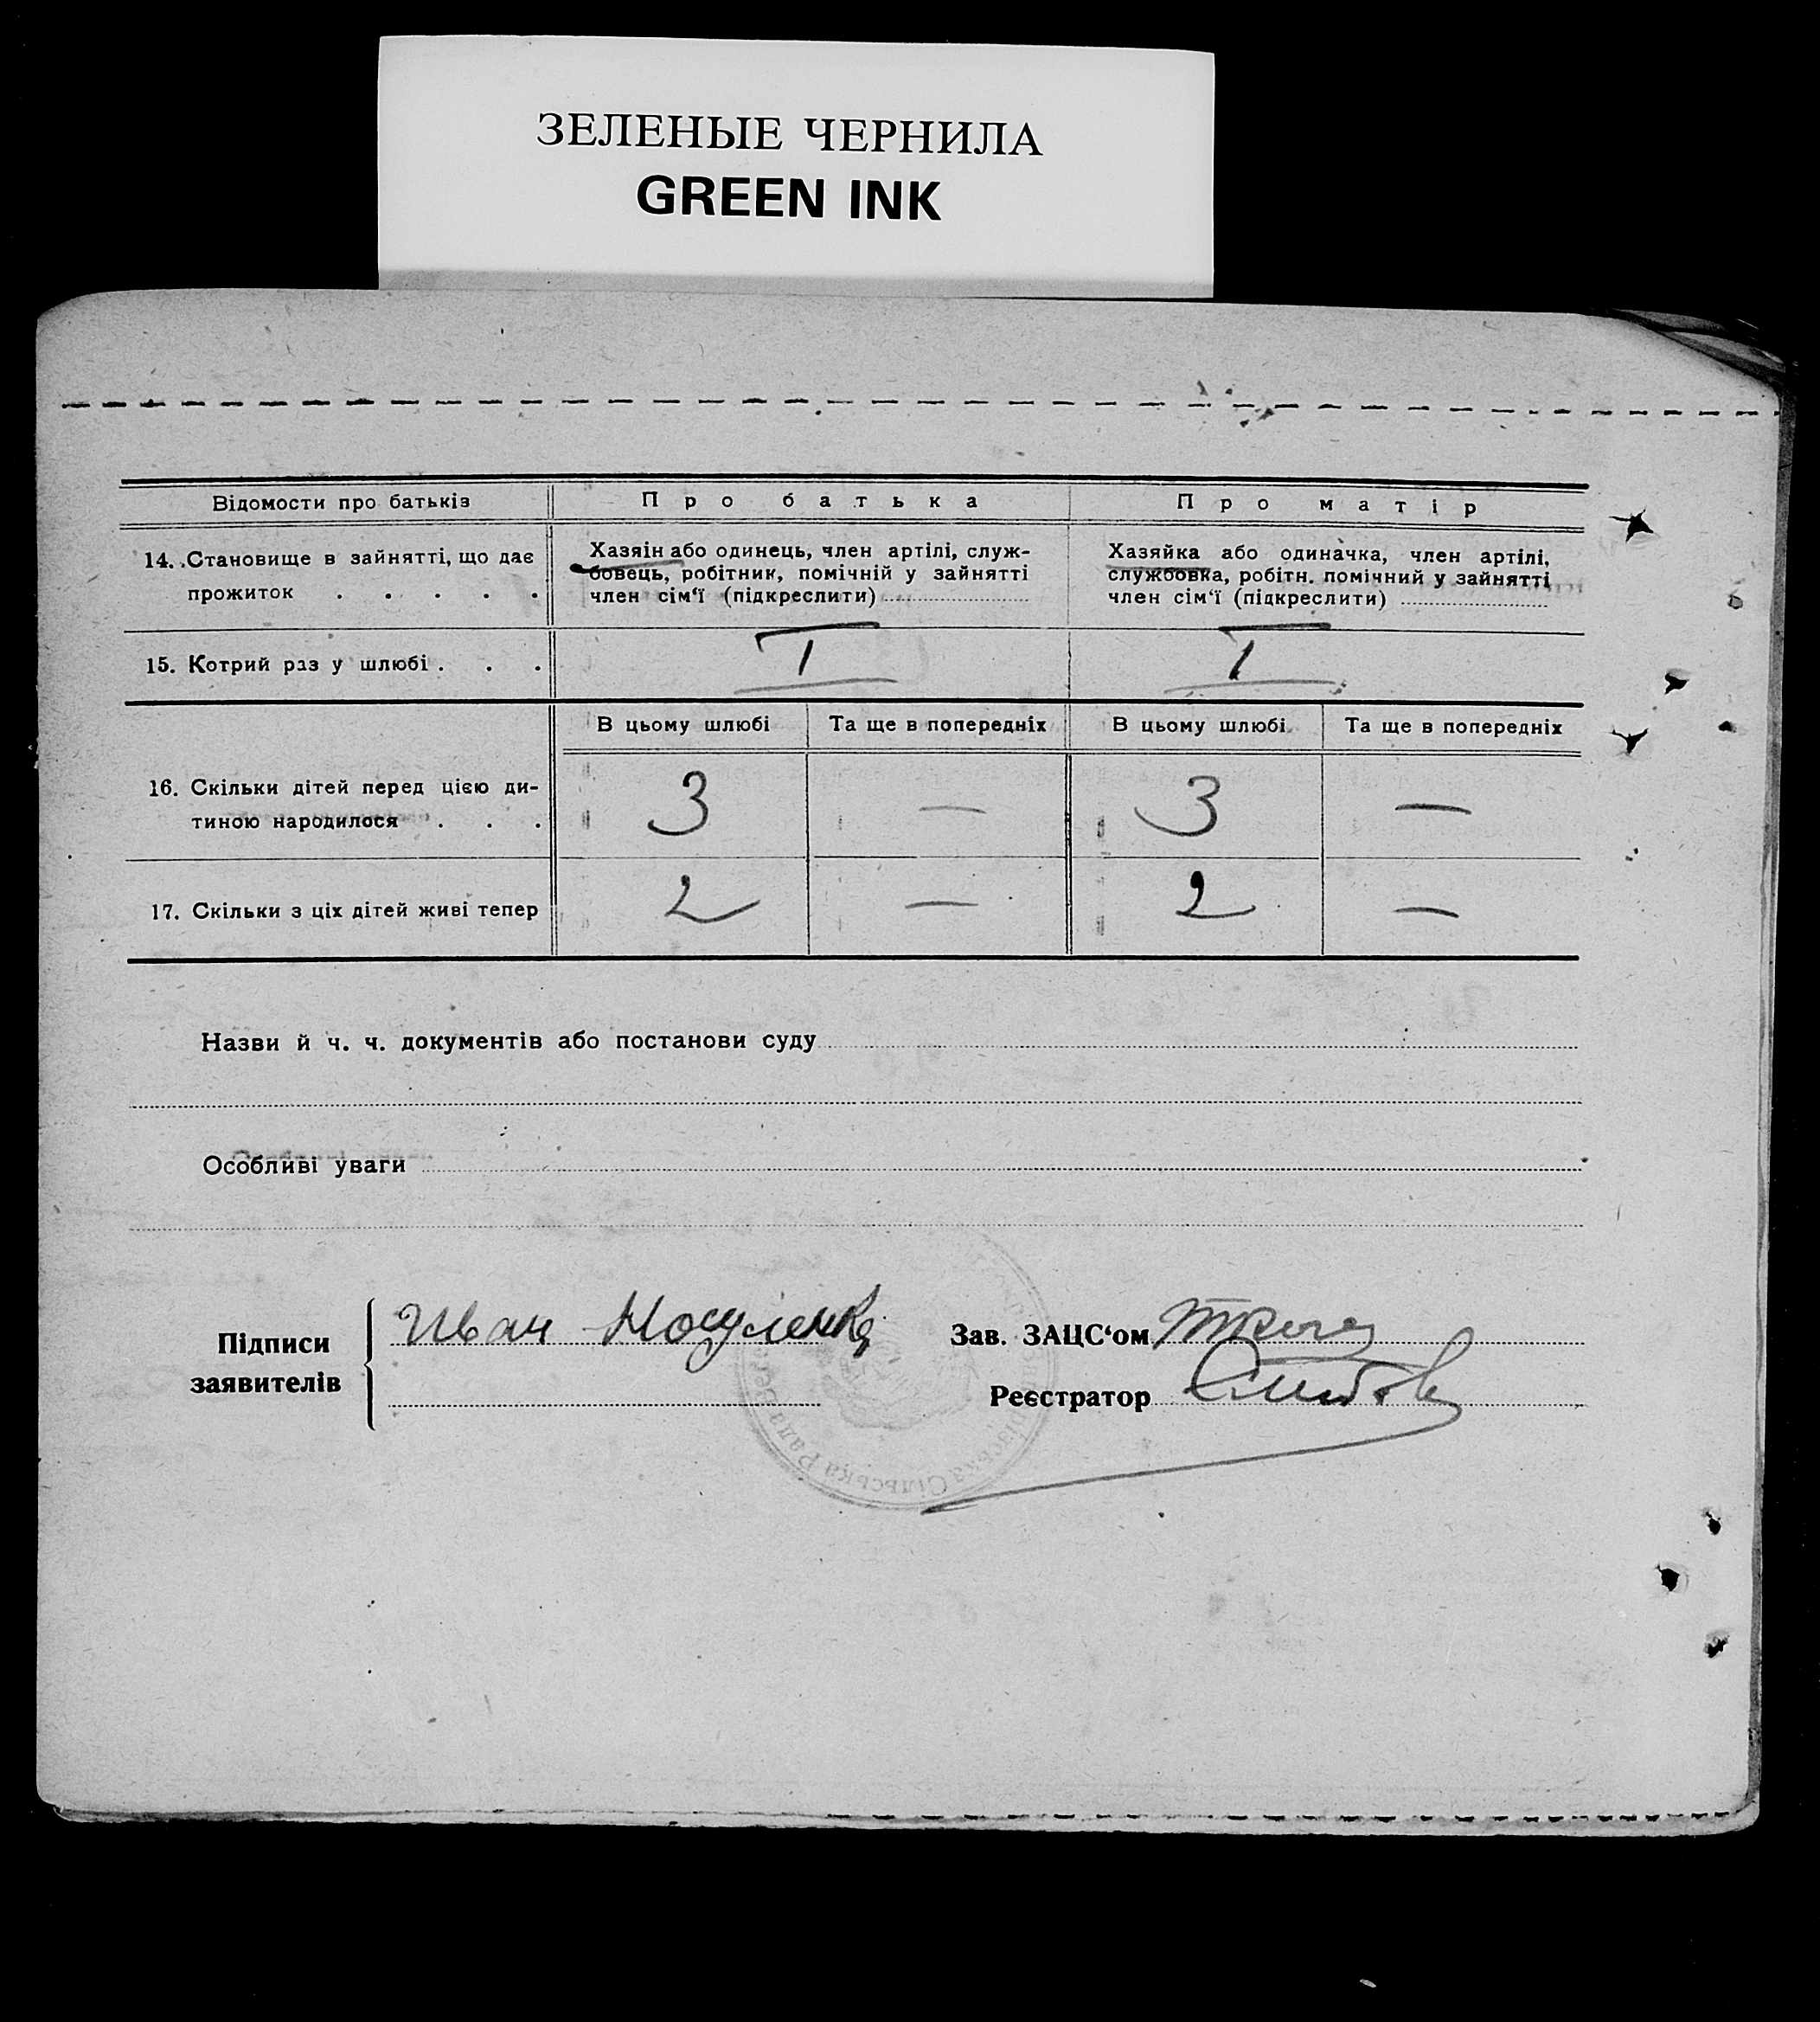 ЗЕЛЕНЫЕ ЧЕРНИЛА
GREEN INK
Відомости про батьків
Про батька
Про матір
14. Становище в зайнятті, що дає
прожиток . . . . .
Хазяін або одинець, член артілі, служ-
бовець, робітник, помічній у зайнятті
член сім‘ї (підкреслити)
Хазяйка або одиначка, член артілі,
службовка, робітн. помічний у зайнятті
член сім‘ї (підкреслити)
15. Котрий раз у шлюбі . . .
I
I
В цьому шлюбі
Та ще в попередніх
В цьому шлюбі
Та ще в попередніх
16. Скільки дітей перед цією ди-
тиною народилося . . .
3
—
3
—
17. Скільки з ціх дітей живі тепер
2
—
2
—
Назви й ч. ч. документів або постанови суду
Особливі уваги
Підписи
заявителів
Иван Носуленко
Зав. ЗАЦС‘ом
Реєстратор
Сільська Рада